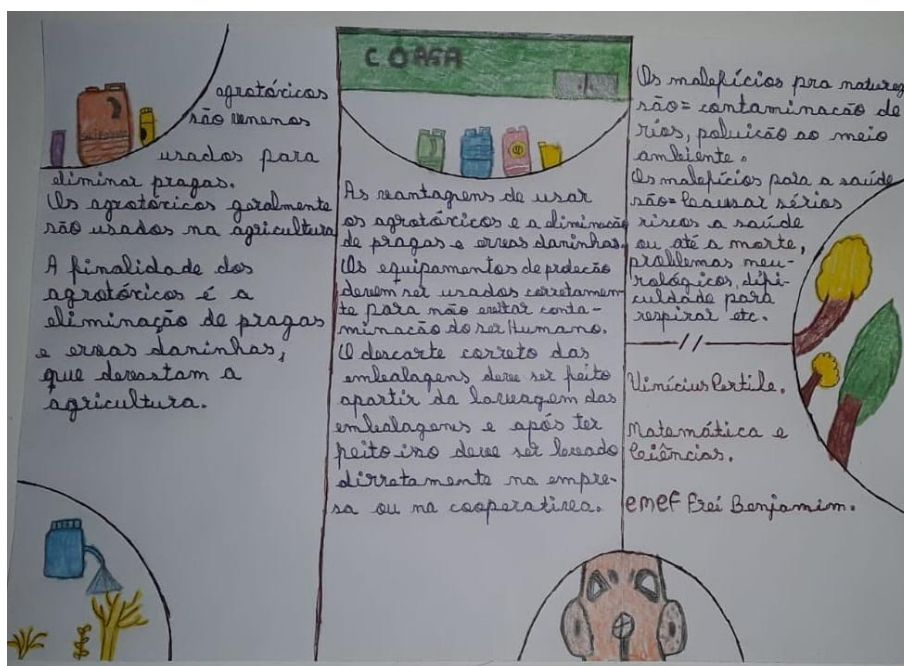 agrotóxicos
são venenos
usados para
eliminar pragas.
Os agrotóxicos geralmente
são usados na agricultura
A finalidade dos
agrotóxicos é a
eliminação de pragas
e ervas daninhas,
que devastam a
agricultura.
COAGA
As vantagens de usar
os agrotóxicos e a eliminação
de pragas e ervas daninhas.
Os equipamentos de proteção
devem ser usados corretamen
te para não evitar conta-
minação do ser Humano.
O descarte correto das
embalagens deve ser feito
apartir da lavagem das
embalagens e após ter
feito isso deve ser levado
dirretamente na empre-
sa ou na cooperativa.
Os malefícios pra naturez
são= contaminacão de
rios, poluicão ao meio
ambiente.
Os malefícios pala a saúde
são= Causar sérios
riscos a saúde
ou até a morte,
problemas neu-
rológicos, difi-
culdade para
respirar etc.
Vinícius Pertile.
Matemática e
Ciências.
emef Frei Benjamim.